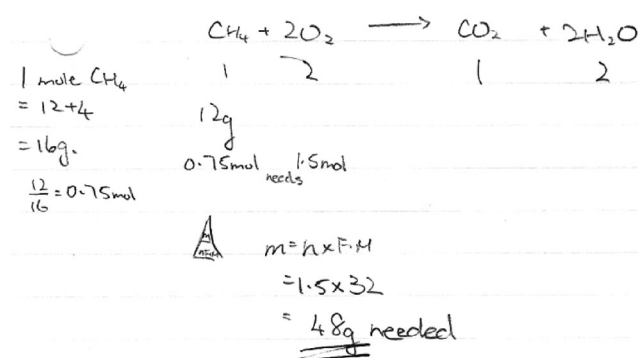 CH₄ + 2O₂ → CO₂ + 2H₂O
1 2 1 2
1 mole CH₄
= 12+4
= 16g.
12/16 = 0.75mol
12g
0.75mol needs 1.5mol
m
n F.M
m = n x F.M
= 1.5 x 32
= 48g needed